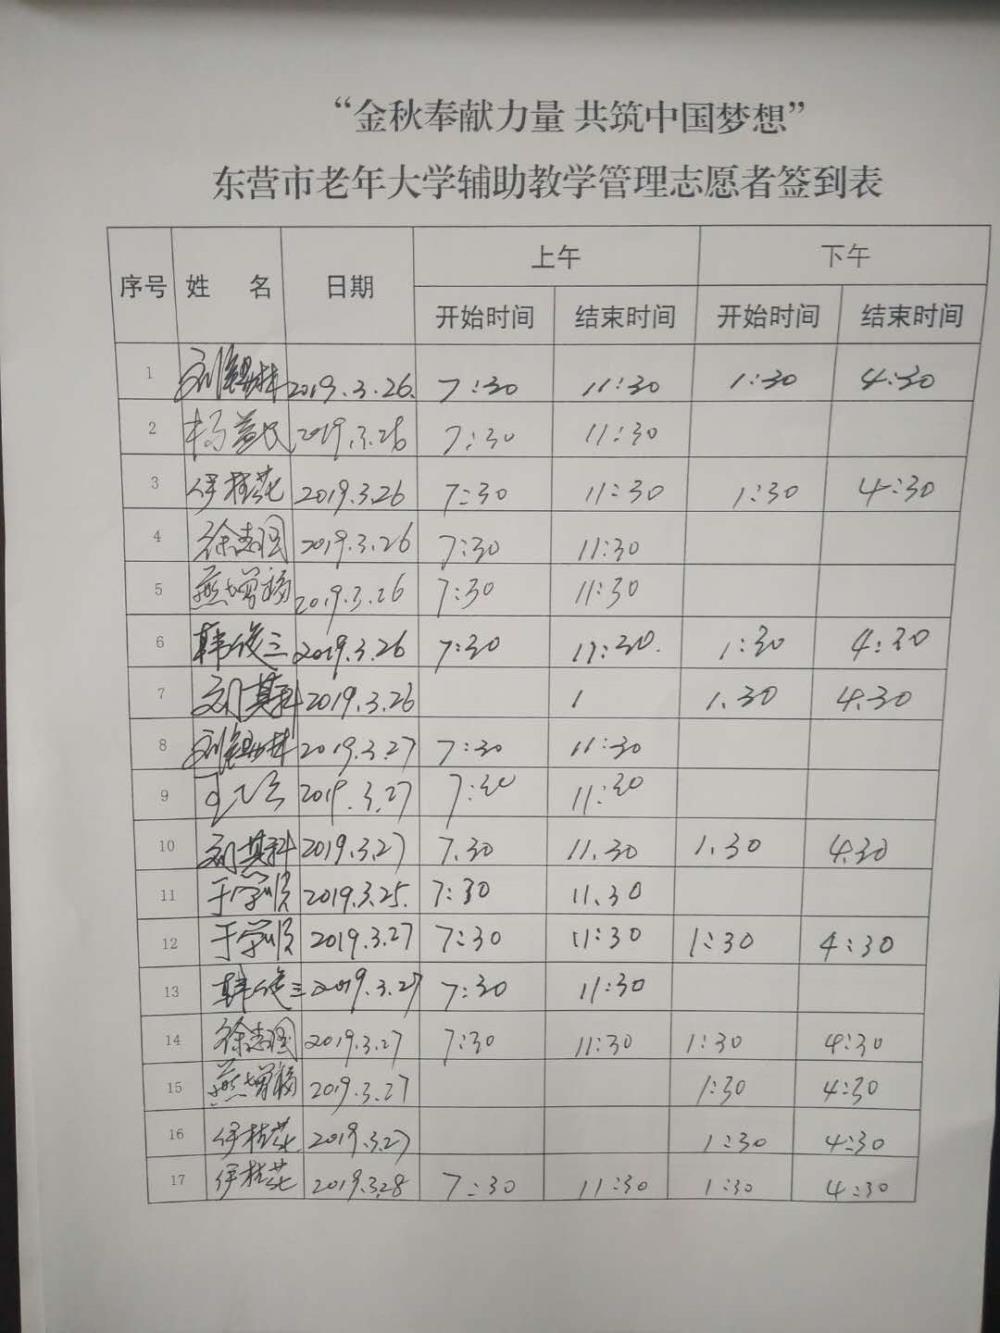 “金秋奉献力量 共筑中国梦想”
东营市老年大学辅助教学管理志愿者签到表
序号 姓 名 日期 上午 下午
开始时间 结束时间 开始时间 结束时间
1 刘锡林 2019.3.26. 7:30 11:30 1:30 4:30
2 杨益民 2019.3.26 7:30 11:30
3 伊桂花 2019.3.26 7:30 11:30 1:30 4:30
4 徐志国 2019.3.26 7:30 11:30
5 燕增福 2019.3.26 7:30 11:30
6 韩俊三 2019.3.26 7:30 11:30. 1:30 4:30
7 刘其科 2019.3.26 1 1.30 4.30
8 刘锡林 2019.3.27 7:30 11:30
9 2019.3.27 7:30 11:30
10 刘其科 2019.3.27 7.30 11.30 1.30 4.30
11 于学顺 2019.3.25. 7:30 11.30
12 于学顺 2019.3.27 7:30 11:30 1:30 4:30
13 韩俊三 2019.3.27 7:30 11:30
14 徐志国 2019.3.27 7:30 11:30 1:30 4:30
15 燕增福 2019.3.27 1:30 4:30
16 伊桂花 2019.3.27 1:30 4:30
17 伊桂花 2019.3.28 7:30 11:30 1:30 4:30